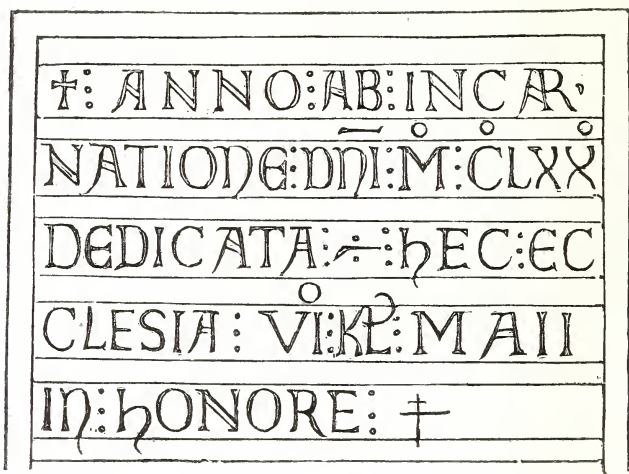 ✝: ANNO:AB:INCAR·
NATIONE:DNI:M:CLXX
DEDICATA:÷:hEC:EC
CLESIA:VI:KL:MAII
IN:hONORE:‡